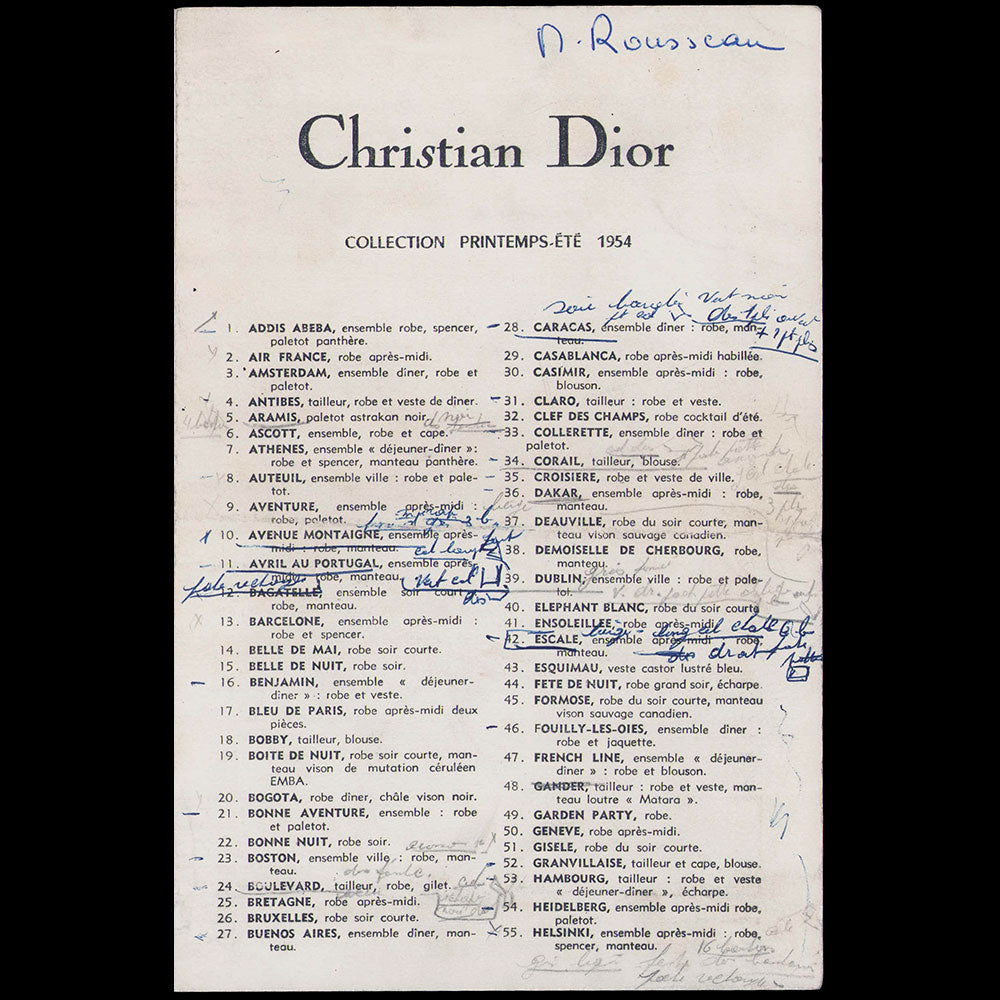 M. Rousseau
Christian Dior
COLLECTION PRINTEMPS-ÉTÉ 1954
1. ADDIS ABEBA, ensemble robe, spencer,
paletot panthère.
2. AIR FRANCE, robe après-midi.
3. AMSTERDAM, ensemble dîner, robe et
paletot.
4. ANTIBES, tailleur, robe et veste de dîner.
5. ARAMIS, paletot astrakan noir.
6. ASCOTT, ensemble, robe et cape.
7. ATHENES, ensemble « déjeuner-dîner »:
robe et spencer, manteau panthère.
8. AUTEUIL, ensemble ville : robe et pale-
tot.
9. AVENTURE, ensemble après-midi :
robe, paletot.
10. AVENUE MONTAIGNE, ensemble après-
midi : robe, manteau.
11. AVRIL AU PORTUGAL, ensemble après-
midi : robe, manteau
12. BAGATELLE, ensemble soir court :
robe, manteau.
13. BARCELONE, ensemble après-midi :
robe et spencer.
14. BELLE DE MAI, robe soir courte.
15. BELLE DE NUIT, robe soir.
16. BENJAMIN, ensemble « déjeuner-
diner » : robe et veste.
17. BLEU DE PARIS, robe après-midi deux
pièces.
18. BOBBY, tailleur, blouse.
19. BOITE DE NUIT, robe soir courte, man-
teau vison de mutation céruléen
EMBA.
20. BOGOTA, robe dîner, châle vison noir.
21. BONNE AVENTURE, ensemble : robe
et paletot.
22. BONNE NUIT, robe soir.
23. BOSTON, ensemble ville : robe, man-
teau.
24. BOULEVARD, tailleur, robe, gilet.
25. BRETAGNE, robe après-midi.
26. BRUXELLES, robe soir courte.
27. BUENOS AIRES, ensemble dîner, man-
teau.
28. CARACAS, ensemble dîner : robe, man-
teau.
29. CASABLANCA, robe après-midi habillée.
30. CASIMIR, ensemble après-midi : robe,
blouson.
31. CLARO, tailleur : robe et veste.
32. CLEF DES CHAMPS, robe cocktail d'été.
33. COLLERETTE, ensemble dîner : robe et
paletot.
34. CORAIL, tailleur, blouse.
35. CROISIERE, robe et veste de ville.
36. DAKAR, ensemble après-midi : robe,
manteau.
37. DEAUVILLE, robe du soir courte, man-
teau vison sauvage canadien.
38. DEMOISELLE DE CHERBOURG, robe,
manteau.
39. DUBLIN, ensemble ville : robe et pale-
tot.
40. ELEPHANT BLANC, robe du soir courte
41. ENSOLEILLEE, robe après-midi
42. ESCALE, ensemble après-midi : robe,
manteau.
43. ESQUIMAU, veste castor lustré bleu.
44. FETE DE NUIT, robe grand soir, écharpe.
45. FORMOSE, robe du soir courte, manteau
vison sauvage canadien.
46. FOUILLY-LES-OIES, ensemble dîner :
robe et jaquette.
47. FRENCH LINE, ensemble « déjeuner-
dîner » : robe et blouson.
48. GANDER, tailleur : robe et veste, man-
teau loutre « Matara ».
49. GARDEN PARTY, robe.
50. GENEVE, robe après-midi.
51. GISELE, robe du soir courte.
52. GRANVILLAISE, tailleur et cape, blouse.
53. HAMBOURG, tailleur : robe et veste
« déjeuner-dîner », écharpe.
54. HEIDELBERG, ensemble après-midi robe,
paletot.
55. HELSINKI, ensemble après-midi : robe,
spencer, manteau.